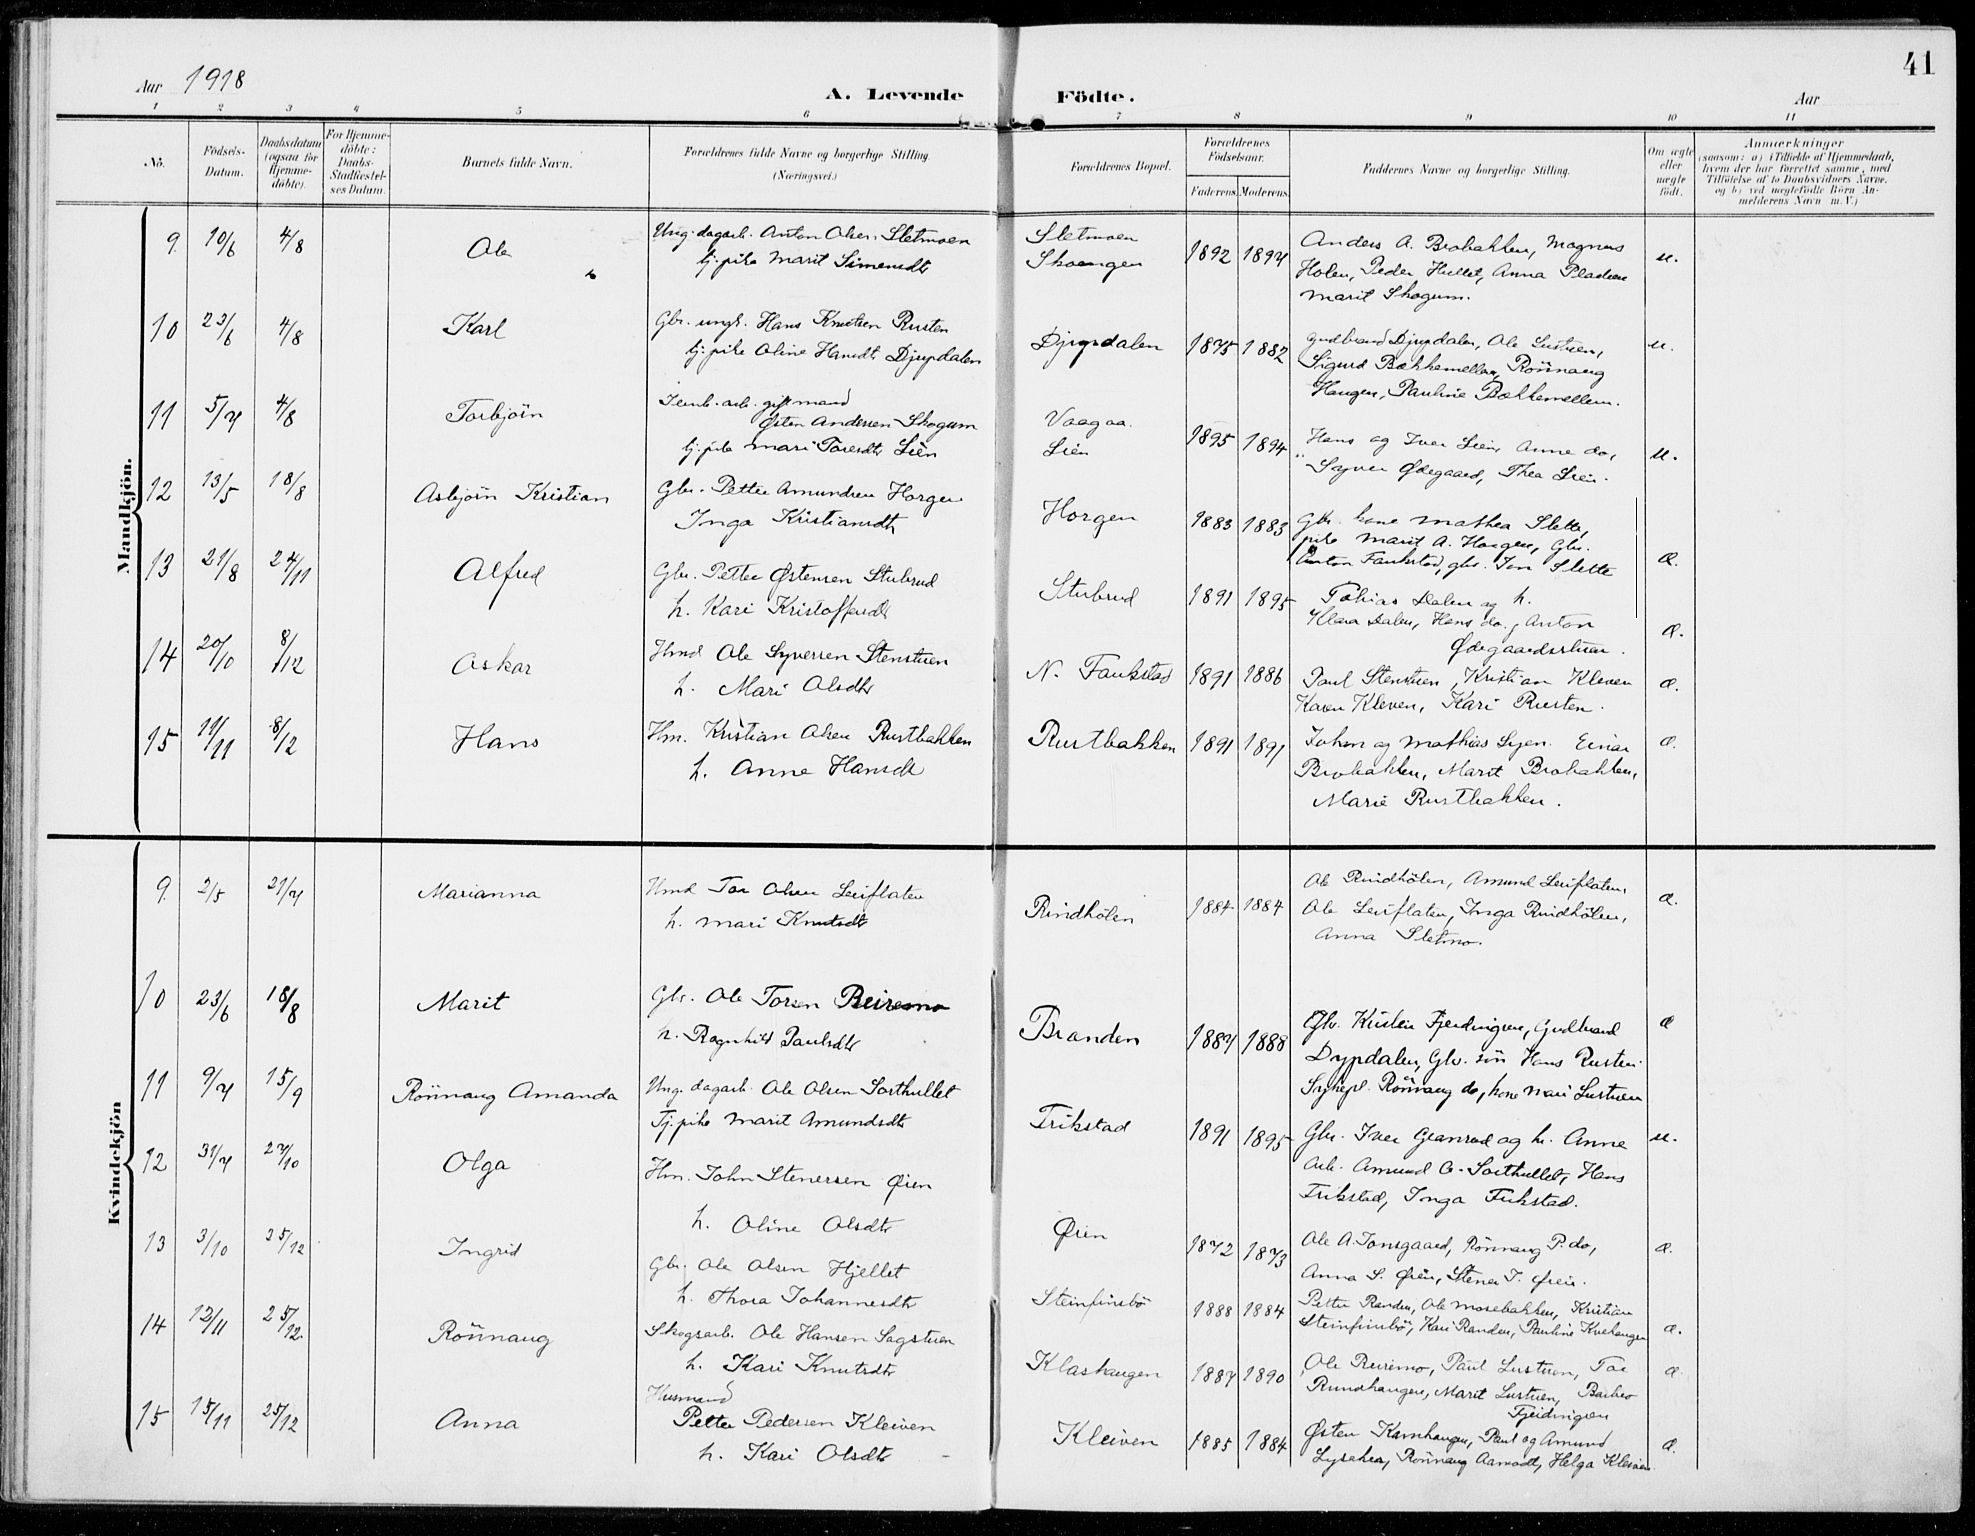 41
Aar 1918
A. Levende Födte.
Aar
1 2 3 4 5 6 7 8 9 10 11
No.
Födsels-Datum.
Daabsdatum (ogsaa for Hjemme-döbte).
For Hjemme-döbte: Daabs-Stadfæstel-ses Datum.
Barnets fulde Navn.
Forældrenes fulde Navne og borgerlige Stilling (Næringsvei.)
Forældrenes Bopæl.
Forældrenes Födselsaar.
Faderens. Moderens.
Faddernes Navne og borgerlige Stilling.
Om ægte eller uægte födt.
Anmærkninger
(saasom: a) i Tilfælde af Hjemmedaab, hvem der har forrettet samme, med Tilföielse af to Daabsvidners Navne, og b) ved uægtefödte Börn An-melderens Navn m.V.)
Mandkjön.
9. 10/6 4/8 Ole Ung. dagarb. Anton Olsen Sletmoen Sletmoen 1892 1894 Anders A. Brobakken, Magnus u.
tj. pike Marit Simensdt Skoengen Holen, Peder Hullet, Anna Pladsen
Marit Skogum.
10 23/6 4/8 Karl Gbr. ungk. Hans Knutsen Rusten Djupdalen 1875 1882 Gudbrand Djupdalen, Ole Lustuen, u.
tj. pike Oline Hansdt Djupdalen Sigurd Bækkemellem, Rönnaug
Haugen, Pauline Bækkemellem.
11 5/7 4/8 Torbjörn Jernb. arb. gift mand Vaagaa.
Østen Andersen Skogum 1895 1894 Hans og Iver Lien, Anne do, u.
tj. pike Mari Toresdt Lien Lien Syver Ødegaard, Thea Lien.
12 13/5 18/8 Asbjörn Kristian Gbr. Petter Amundsen Horgen Horgen 1883 1883 Gbr. kone Mathea Slette, Æ.
Inga Kristiansdt pike Marit A. Horgen, Gbr.
Anton Faukstad, gbr. Jon Slette
13 21/8 24/11 Alfred Gbr. Petter Østensen Stubrud Stubrud 1891 1895 Tobias Dalen og h. Æ.
h. Kari Kristoffersdt Klara Dalen, Hans do., Anton
Ødegaardsstuen.
14 20/10 8/12 Oskar Hmd Ole Syversen Stenstuen N. Faukstad 1891 1886 Paul Stenstuen, Kristian Kleven Æ.
h. Mari Olsdt Karen Kleven, Kari Rusten.
15 11/11 8/12 Hans Hm. Kristian Olsen Rustbakken Rustbakken 1891 1891 Johan og Mathias Lyen. Einar Æ.
h. Anne Hansdt Brobakken, Marit Brobakken,
Marie Rustbakken.
Kvindekjön
9. 2/5 21/7 Marianna Hmd Tor Olsen Leirflaten Rindhölen 1884 1884 Ole Rindhölen, Amund Leirflaten, Æ.
h. Mari Knutsdt Ole Leirflaten, Inga Rindhölen,
Anna Sletmo.
10 23/6 18/8 Marit Gbr. Ole Torsen Reiremo Branden 1887 1888 Gbr. Kristen Fjerdingren, Gudbrand Æ
h. Ragnhild Paulsdt Dypdalen, Gbr. sön Hans Rusten
Sykepl. Rönnaug do, kone Mari Lustuen
11 9/7 15/9 Rönnaug Amanda Ung. dagarb. Ole Olsen Sorthullet Frikstad 1891 1895 Gbr. Iver Granrud og h. Anne u.
Tj. pike Marit Amundsdt Arb. Amund O. Sorthullet, Hans
Frikstad, Inga Frikstad.
12 31/7 27/10 Olga Hm. John Stenersen Øien Øien 1872 1873 Ole A. Jonsgaard, Rönnaug P. do, Æ.
h. Oline Olsdt Anna S. Øien, Stener J. Øien.
13 3/10 25/12 Ingrid Gbr. Ole Olsen Hjellet Steinfinsbö 1888 1884 Petter Randen, Ole Mosebakken, Kristian
h. Thora Johannesdt Steinfinsbö, Kari Randen, Pauline Kvehaugen Æ.
14 12/11 25/12. Rönnaug Skogsarb. Ole Hansen Sagstuen Klashaugen 1887 1890 Ole Reiremo, Paul Lustuen, Tor Æ
h. Kari Knutsdt Rundhaugen, Marit Lustuen, Barbro
Fjerdingren
15 15/11 25/12 Anna Husmand
Petter Pedersen Kleiven Kleiven 1885 1884 Østen Kamhaugen, Paul og Amund Æ.
h. Kari Olsdt Rönnaug Aamodt, Helga Kleiven